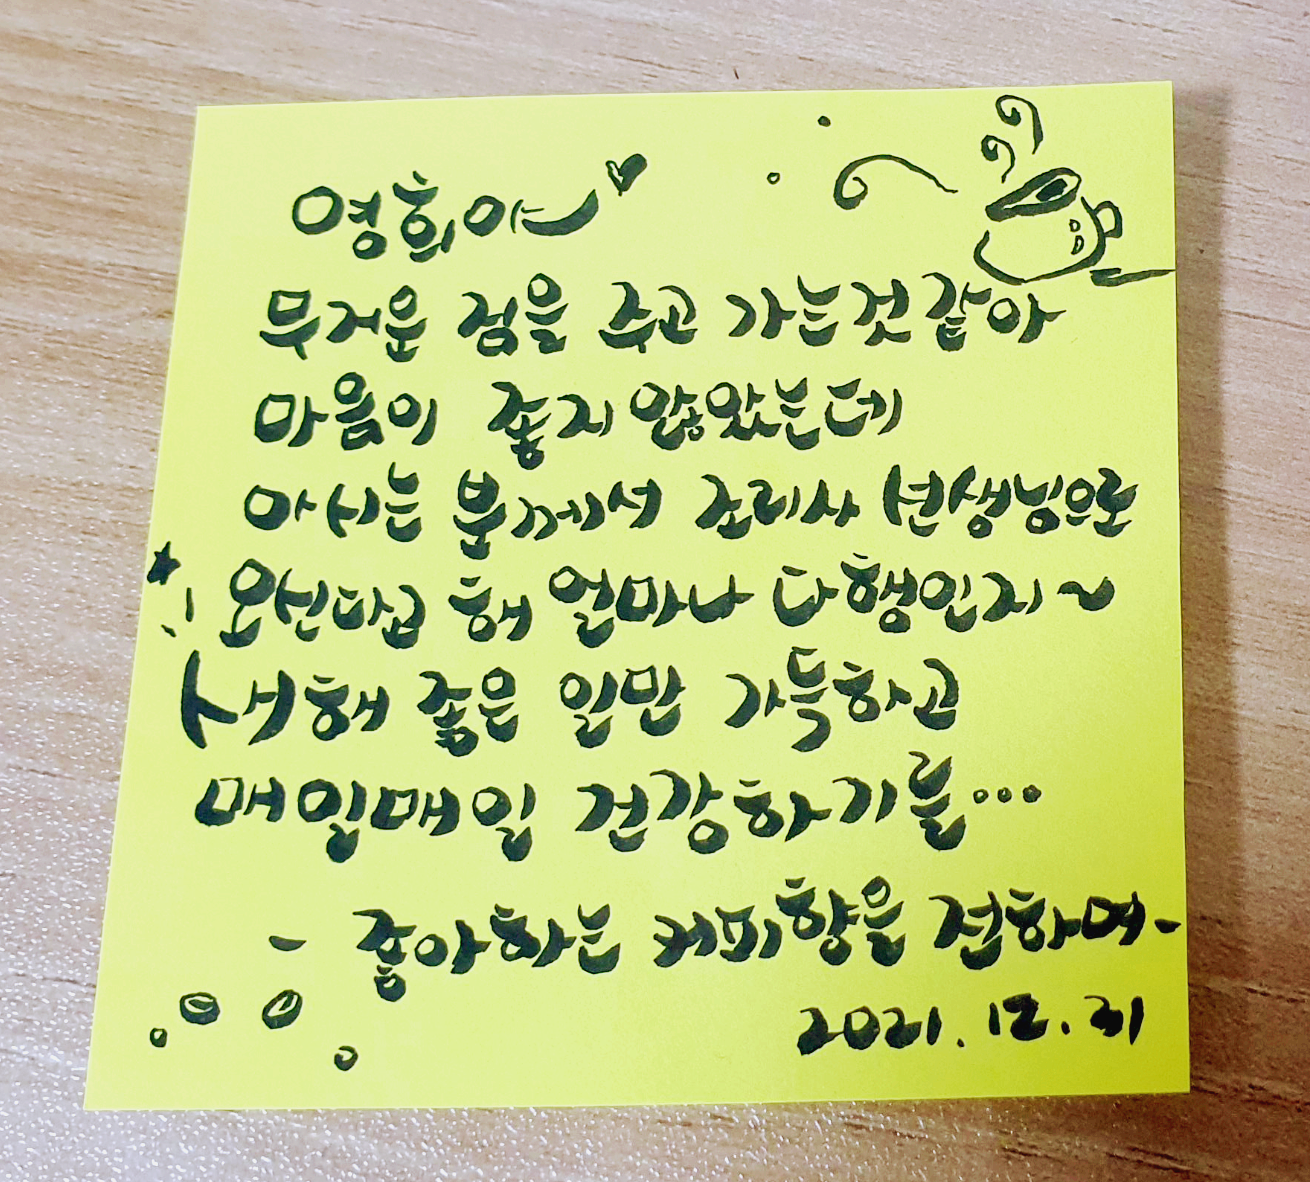 영희야
무거운 짐을 주고 가는것 같아
마음이 좋지 않았는데
아시는 분께서 조리사 선생님으로
오신다고 해 얼마나 다행인지~
새해 좋은 일만 가득하고
매일매일 건강하기를...
- 좋아하는 커피향을 전하며-
2021. 12. 31